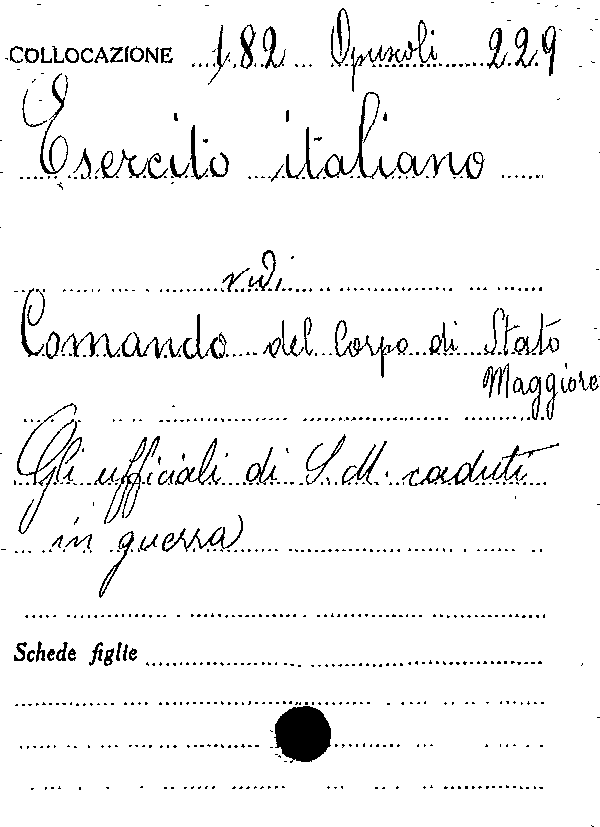 COLLOCAZIONE 182 Opuscoli 229
Esercito italiano
vedi
Comando del Corpo di Stato
Maggiore
Gli ufficiali di S. M. caduti
in guerra
Schede figlie